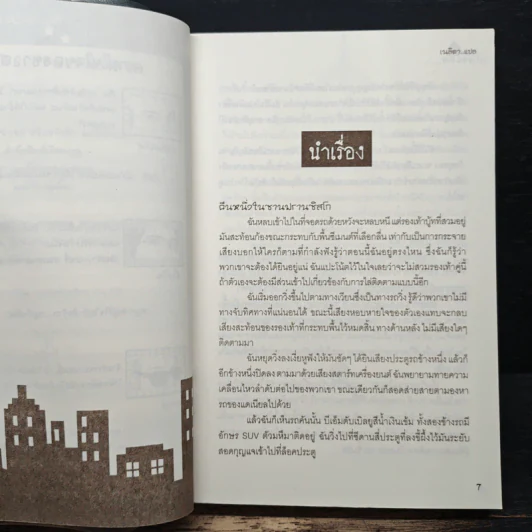 เนติตา..แปล
นำเรื่อง
คืนหนึ่งในซานฟรานซิสโก
ฉันหลบเข้าไปในที่จอดรถด้วยหวังจะหลบหนี แต่รองเท้าบู๊ทที่สวมอยู่
มันสะท้อนก้องขณะกระทบกับพื้นซีเมนต์ที่เลือกลื่น เท่ากับเป็นการกระจาย
เสียงบอกให้ใครก็ตามที่กำลังฟังรู้ว่าตอนนี้ฉันอยู่ตรงไหน ซึ่งฉันก็รู้ว่า
พวกเขาจะต้องได้ยินอยู่แน่ ฉันแปะโน้ตไว้ในใจเลยว่าจะไม่สวมรองเท้าคู่นี้
ถ้าตัวเองจะต้องมีส่วนเข้าไปเกี่ยวข้องกับการไล่ติดตามแบบนี้อีก
ฉันเริ่มออกวิ่งขึ้นไปตามทางเวียนซึ่งเป็นทางรถวิ่ง รู้ดีว่าพวกเขาไม่มี
ทางจับทิศทางที่แน่นอนได้ ขณะนี้เสียงหอบหายใจของตัวเองแทบจะกลบ
เสียงสะท้อนของรองเท้าที่กระทบพื้นไว้หมดสิ้น ทางด้านหลัง ไม่มีเสียงใดๆ
ติดตามมา
ฉันหยุดวิ่งลงเงี่ยหูฟังให้มันชัดๆ ได้ยินเสียงประตูรถข้างหนึ่ง แล้วก็
อีกข้างหนึ่งปิดลง ตามมาด้วยเสียงสตาร์ทเครื่องยนต์ ฉันพยายามทายความ
เคลื่อนไหวลำดับต่อไปของพวกเขา ขณะเดียวกันก็สอดส่ายสายตามองหา
รถของแดเนียลไปด้วย
แล้วฉันก็เห็นรถคันนั้น บีเอ็มดับเบิลยูสีน้ำเงินเข้ม ทั้งสองข้างรถมี
อักษร SUV ตัวมหึมาติดอยู่ ฉันวิ่งไปที่ซีดานสี่ประตูที่ลงขี้ผึ้งไว้มันระยับ
สอดกุญแจเข้าไปที่ล็อคประตู
7